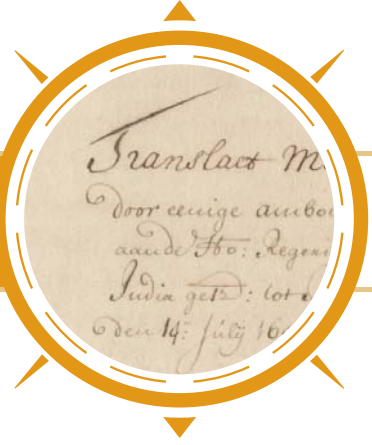 Translaet M
door eenige ambo
aan de Ho: Regeri
India get.: tot
den 14: July 16